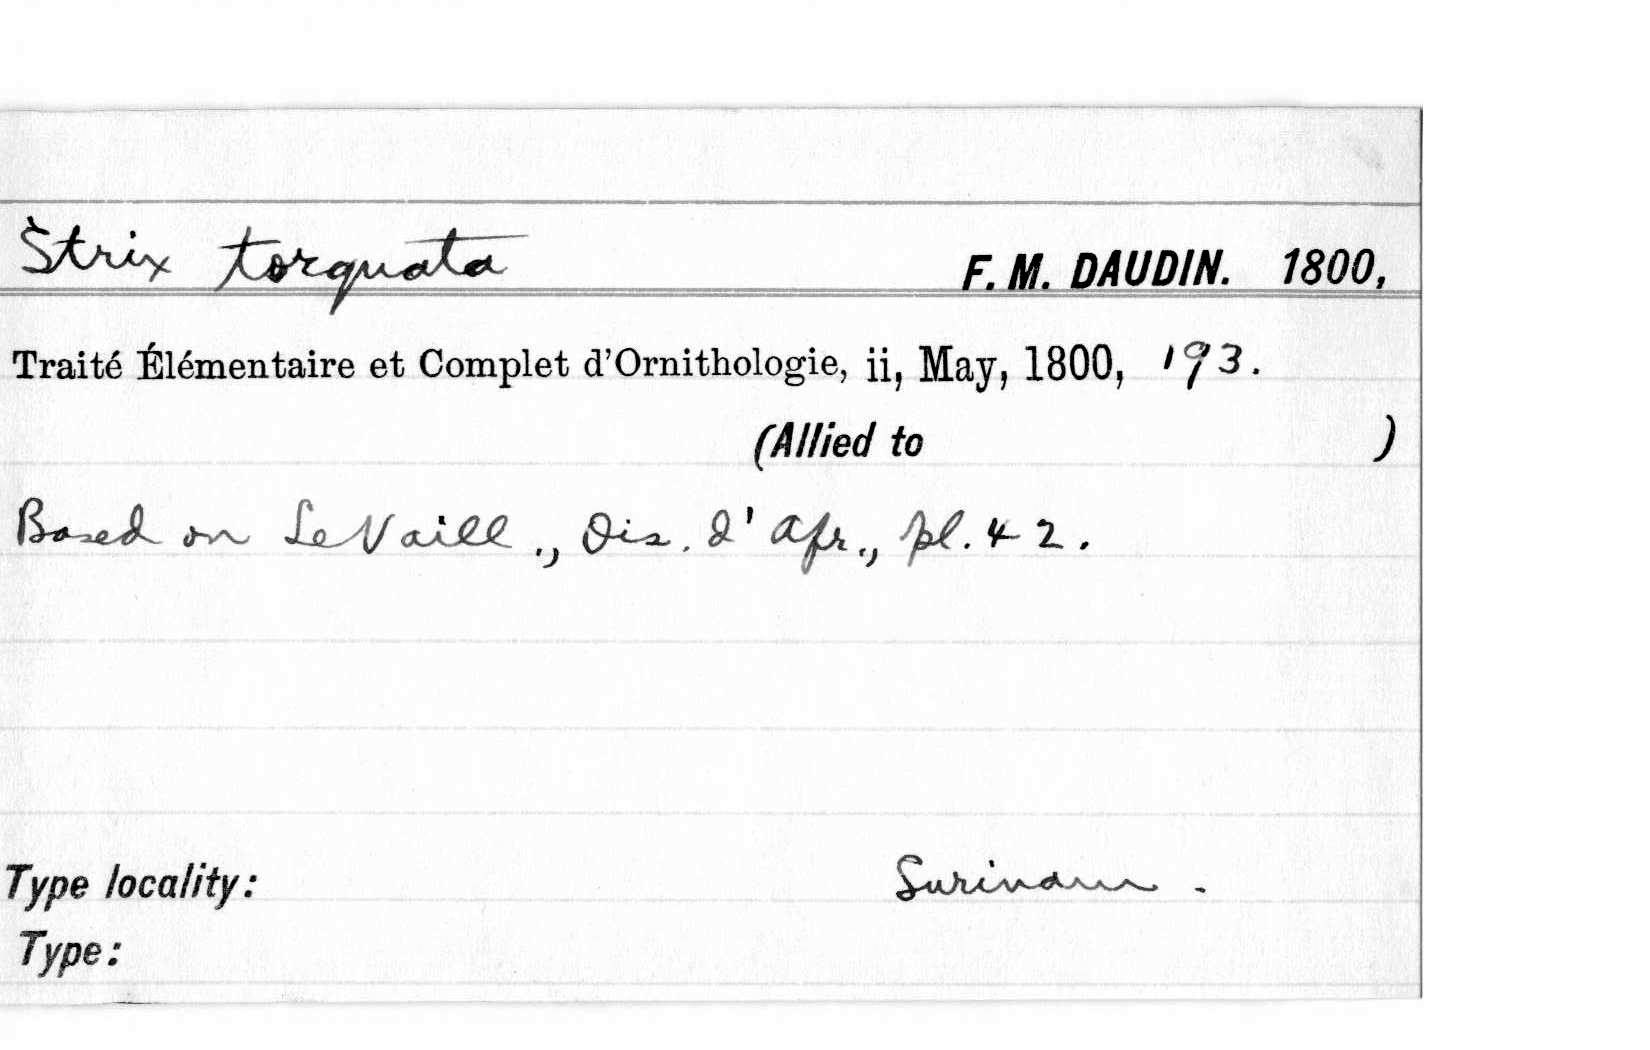 Strix torquata F. M. DAUDIN. 1800,
Traité Élémentaire et Complet d'Ornithologie, ii, May, 1800, 193.
(Allied to )
Based on LeVaill., Ois. d'Afr., pl. 42.
Type locality: Surinam.
Type: